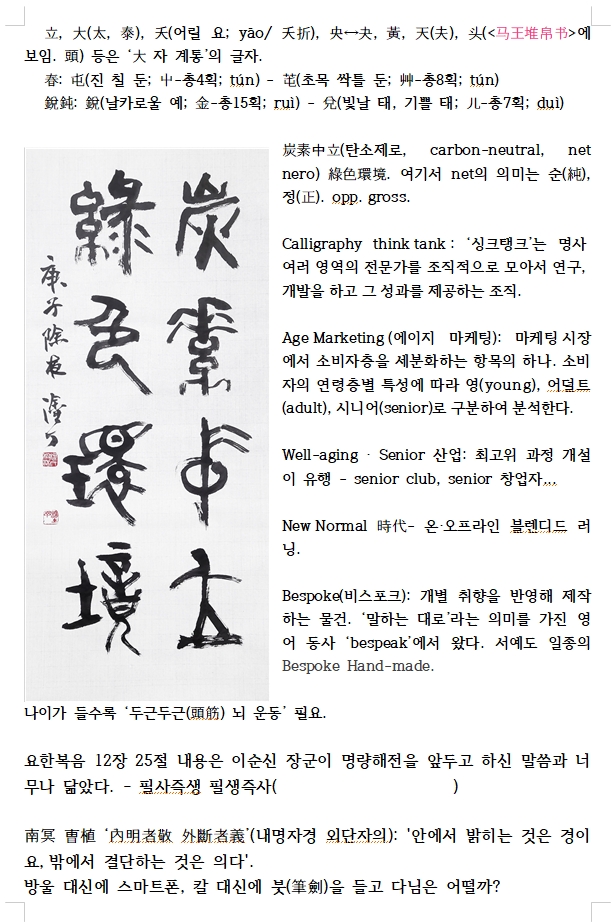 立, 大(太, 泰), 夭(어릴 요; yāo/ 夭折), 央↔夬, 黃, 天(夫), 头(<马王堆帛书>에
보임. 頭) 등은 ‘大 자 계통’의 글자.
春: 屯(진 칠 둔; 屮-총4획; tún) - 芚(초목 싹틀 둔; 艸-총8획; tún)
銳鈍: 銳(날카로울 예; 金-총15획; ruì) - 兌(빛날 태, 기쁠 태; 儿-총7획; duì)
炭素中立
綠色環境
庚子除夜 濟公
炭素中立(탄소제로, carbon-neutral, net
nero) 綠色環境. 여기서 net의 의미는 순(純),
정(正). opp. gross.
Calligraphy think tank : ‘싱크탱크’는 명사
여러 영역의 전문가를 조직적으로 모아서 연구,
개발을 하고 그 성과를 제공하는 조직.
Age Marketing (에이지 마케팅): 마케팅 시장
에서 소비자층을 세분화하는 항목의 하나. 소비
자의 연령층별 특성에 따라 영(young), 어덜트
(adult), 시니어(senior)로 구분하여 분석한다.
Well-aging · Senior 산업: 최고위 과정 개설
이 유행 - senior club, senior 창업자...
New Normal 時代- 온·오프라인 블렌디드 러
닝.
Bespoke(비스포크): 개별 취향을 반영해 제작
하는 물건. ‘말하는 대로’라는 의미를 가진 영
어 동사 ‘bespeak’에서 왔다. 서예도 일종의
Bespoke Hand-made.
나이가 들수록 ‘두근두근(頭筋) 뇌 운동’ 필요.
요한복음 12장 25절 내용은 이순신 장군이 명량해전을 앞두고 하신 말씀과 너
무나 닮았다. - 필사즉생 필생즉사( )
南冥 曺植 ‘內明者敬 外斷者義’(내명자경 외단자의): '안에서 밝히는 것은 경이
요, 밖에서 결단하는 것은 의다'.
방울 대신에 스마트폰, 칼 대신에 붓(筆劍)을 들고 다님은 어떨까?